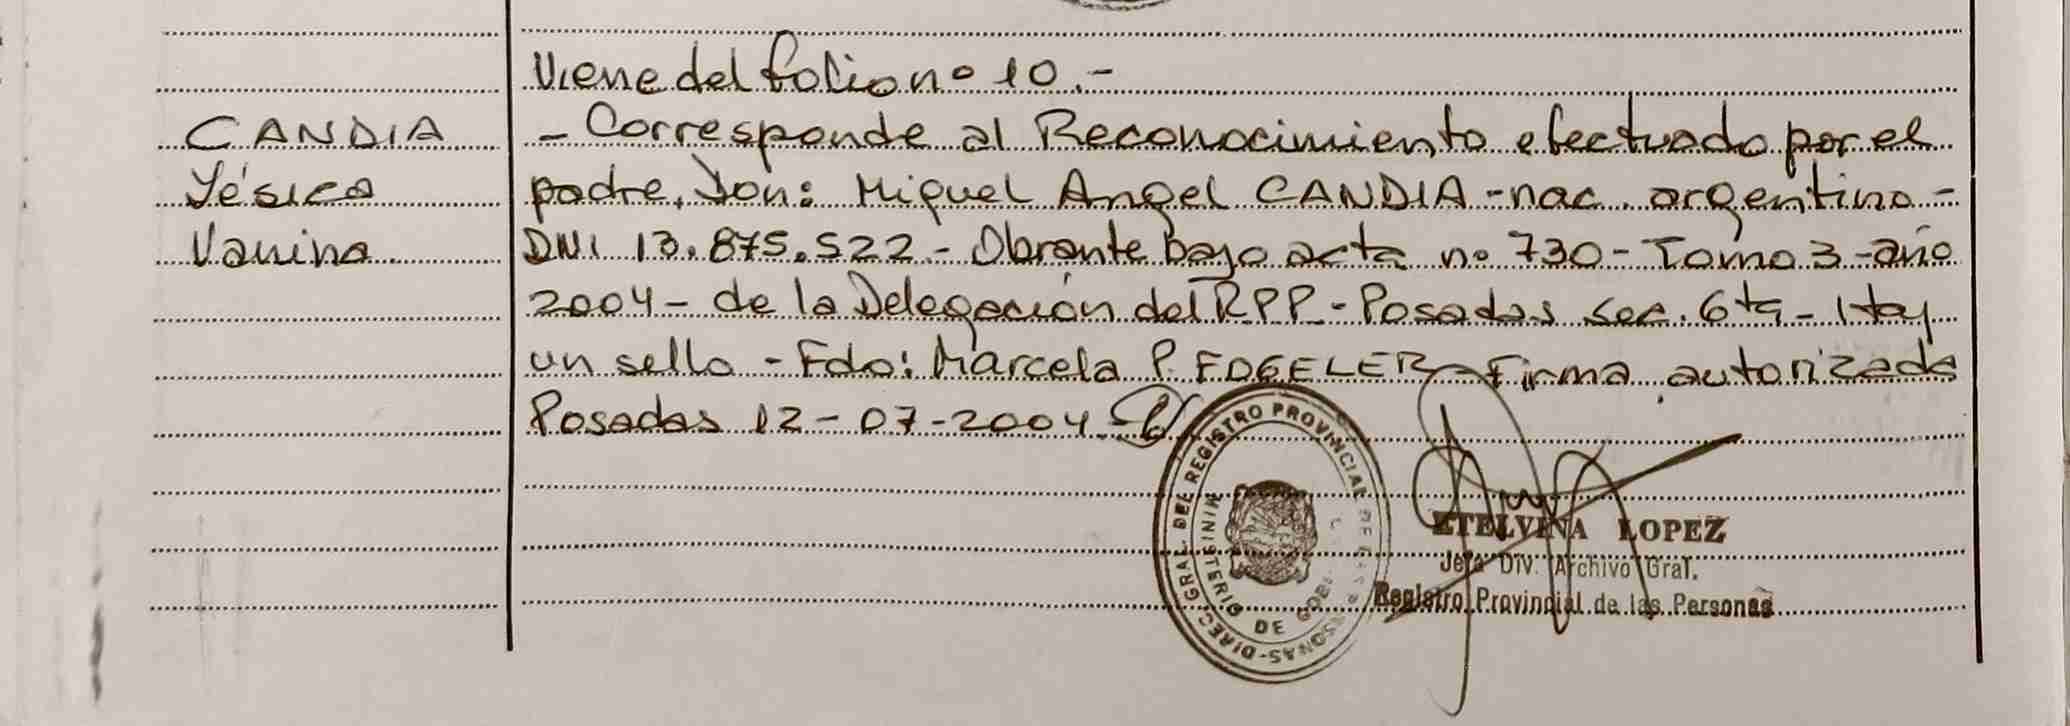 Viene del folio nº 10.-
CANDIA
Yésica
Vanina
- Corresponde al Reconocimiento efectuado por el
padre, Don: Miguel Angel CANDIA - nac. argentino -
DNI 13.875.522 - Obrante bajo acta nº 730 - Tomo 3 - año
2004 - de la Delegación del RPP - Posadas sec. 6ta - Hay
un sello - Fdo: Marcela P. FOGELER - Firma autorizada
Posadas 12-07-2004 -
DIREC. GRAL. DEL REGISTRO PROVINCIAL DE
MINISTERIO DE
ETELVINA LOPEZ
Jefa Div. Archivo Gral.
Registro Provincial de las Personas